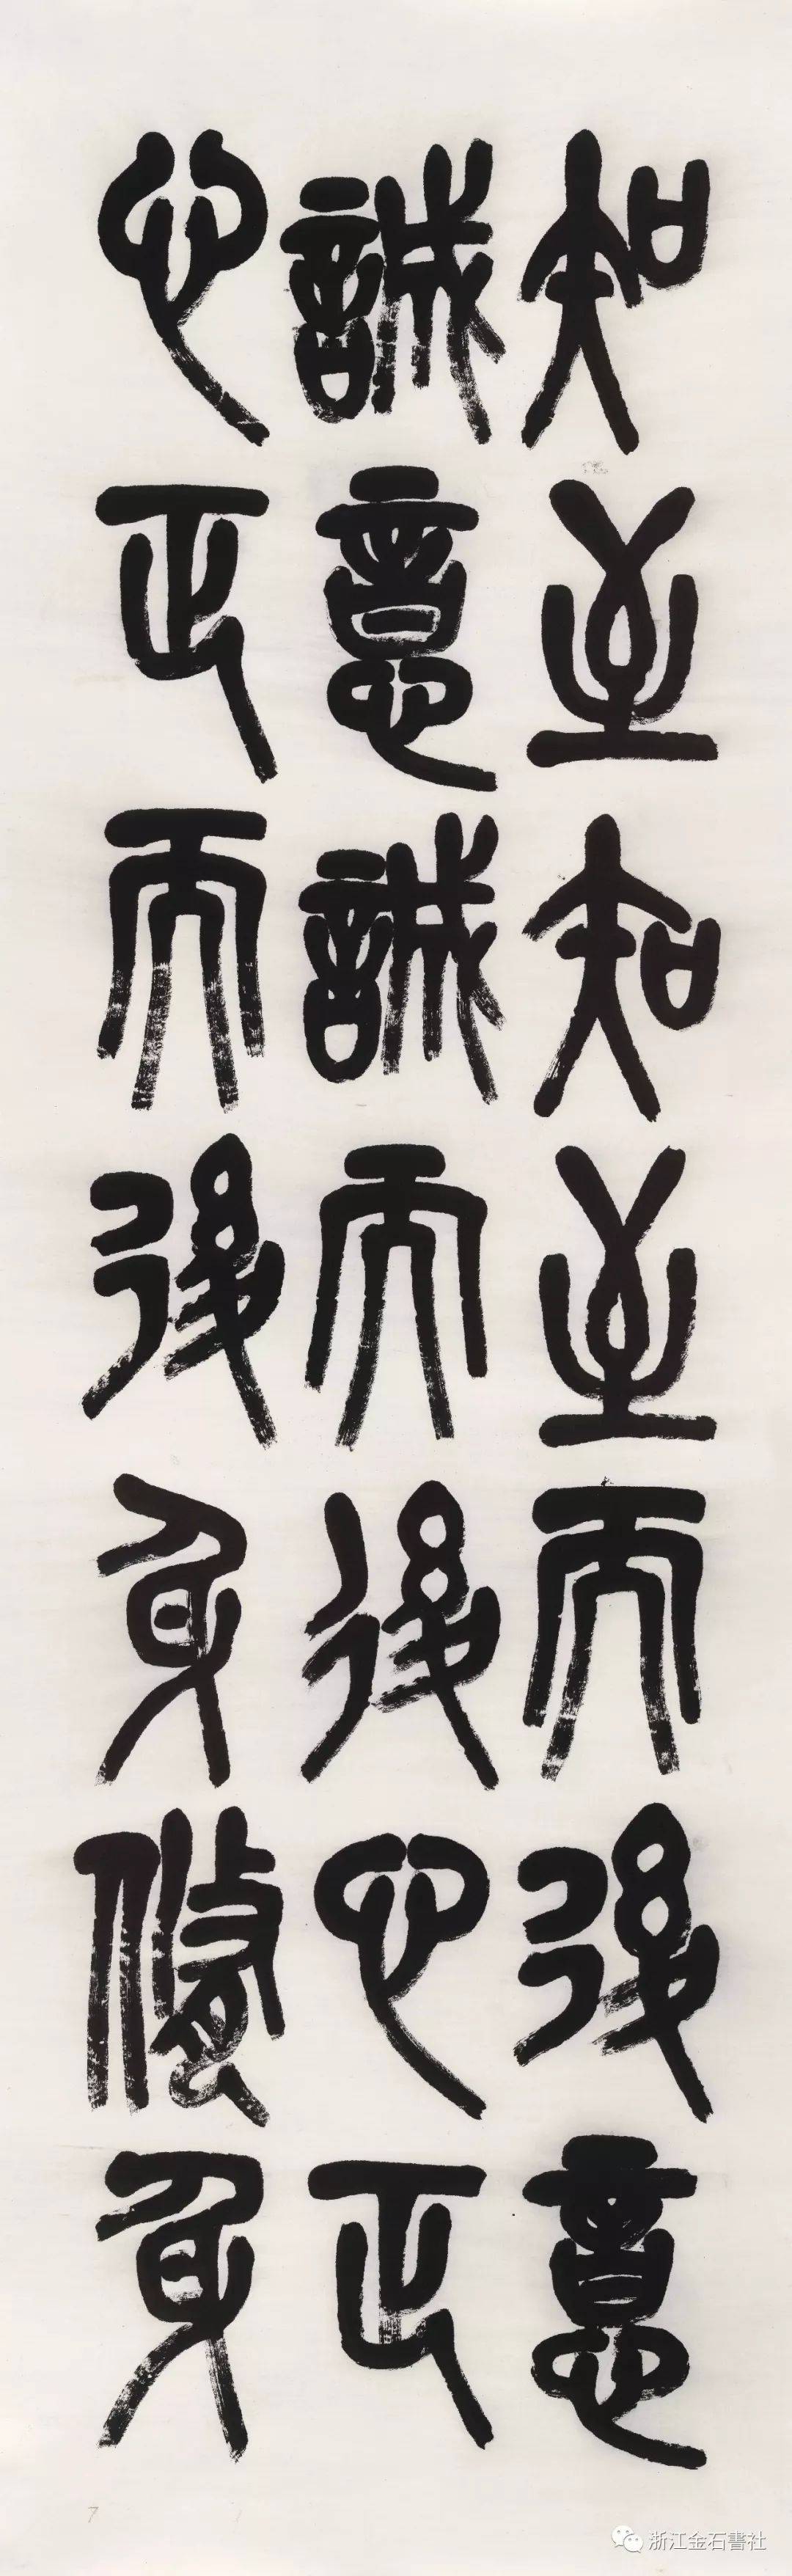 知至知至而後意
誠意誠而後心正
心正而後身修身
浙江金石書社